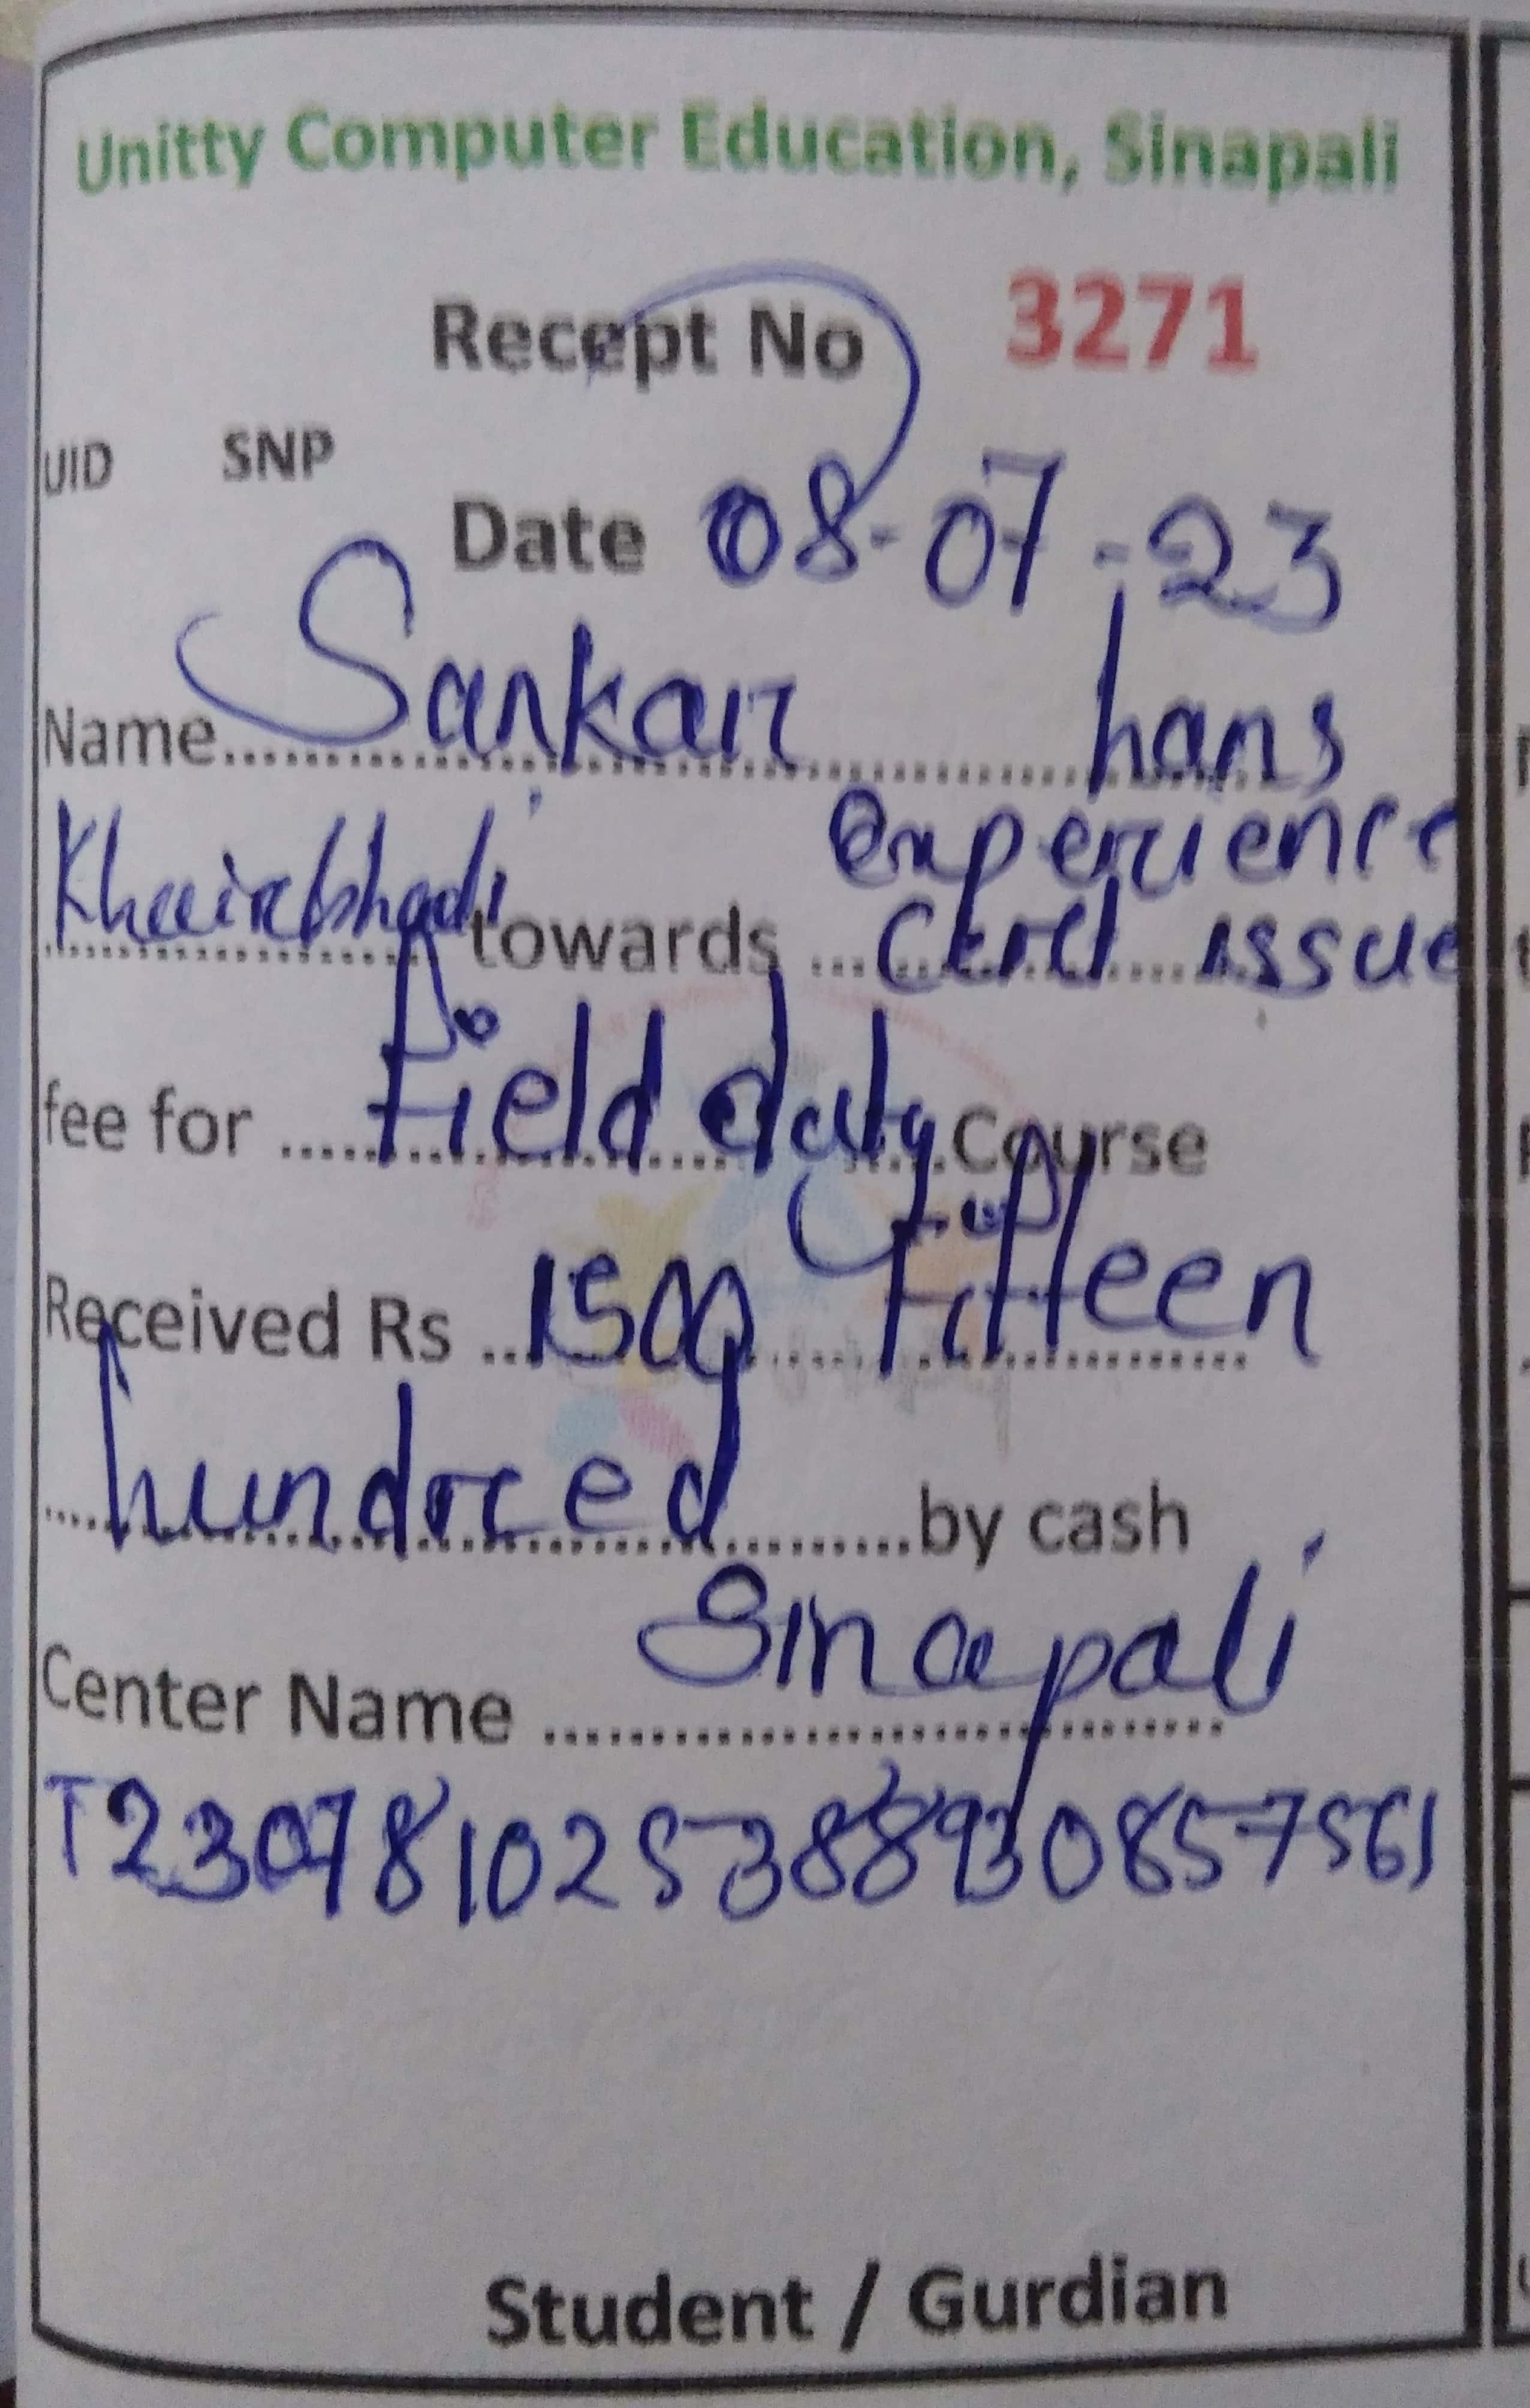 Unitty Computer Education, Sinapali
Recept No 3271
UID SNP
Date 08-07-23
Name Sankar hans
Khairbhadi towards experience
Certi issue
fee for Field duty Course
Received Rs 1500 Fifteen
hundred by cash
Center Name Sinapali
T230781025388930857561
Student / Gurdian